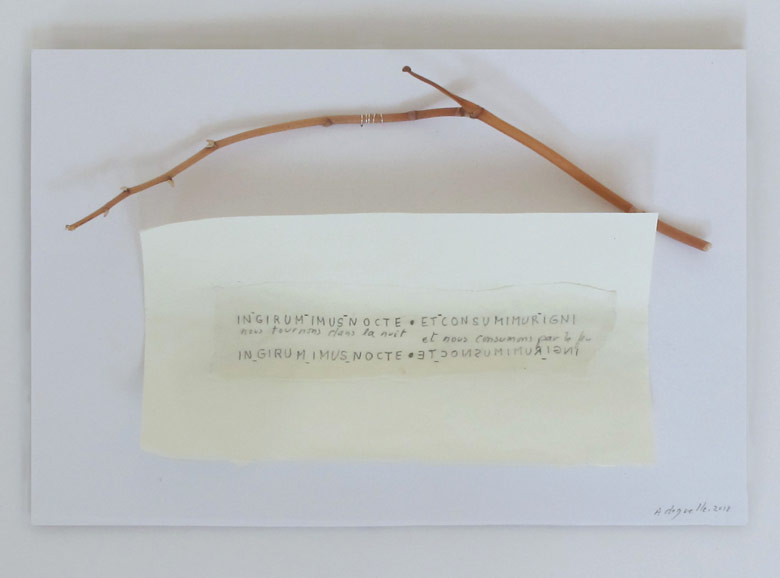 IN GIRUM IMUS NOCTE • ET CONSUMIMUR IGNI
nous tournons dans la nuit et nous consumons par le feu
IN GIRUM IMUS NOCTE • ET CONSUMIMUR IGNI
2018